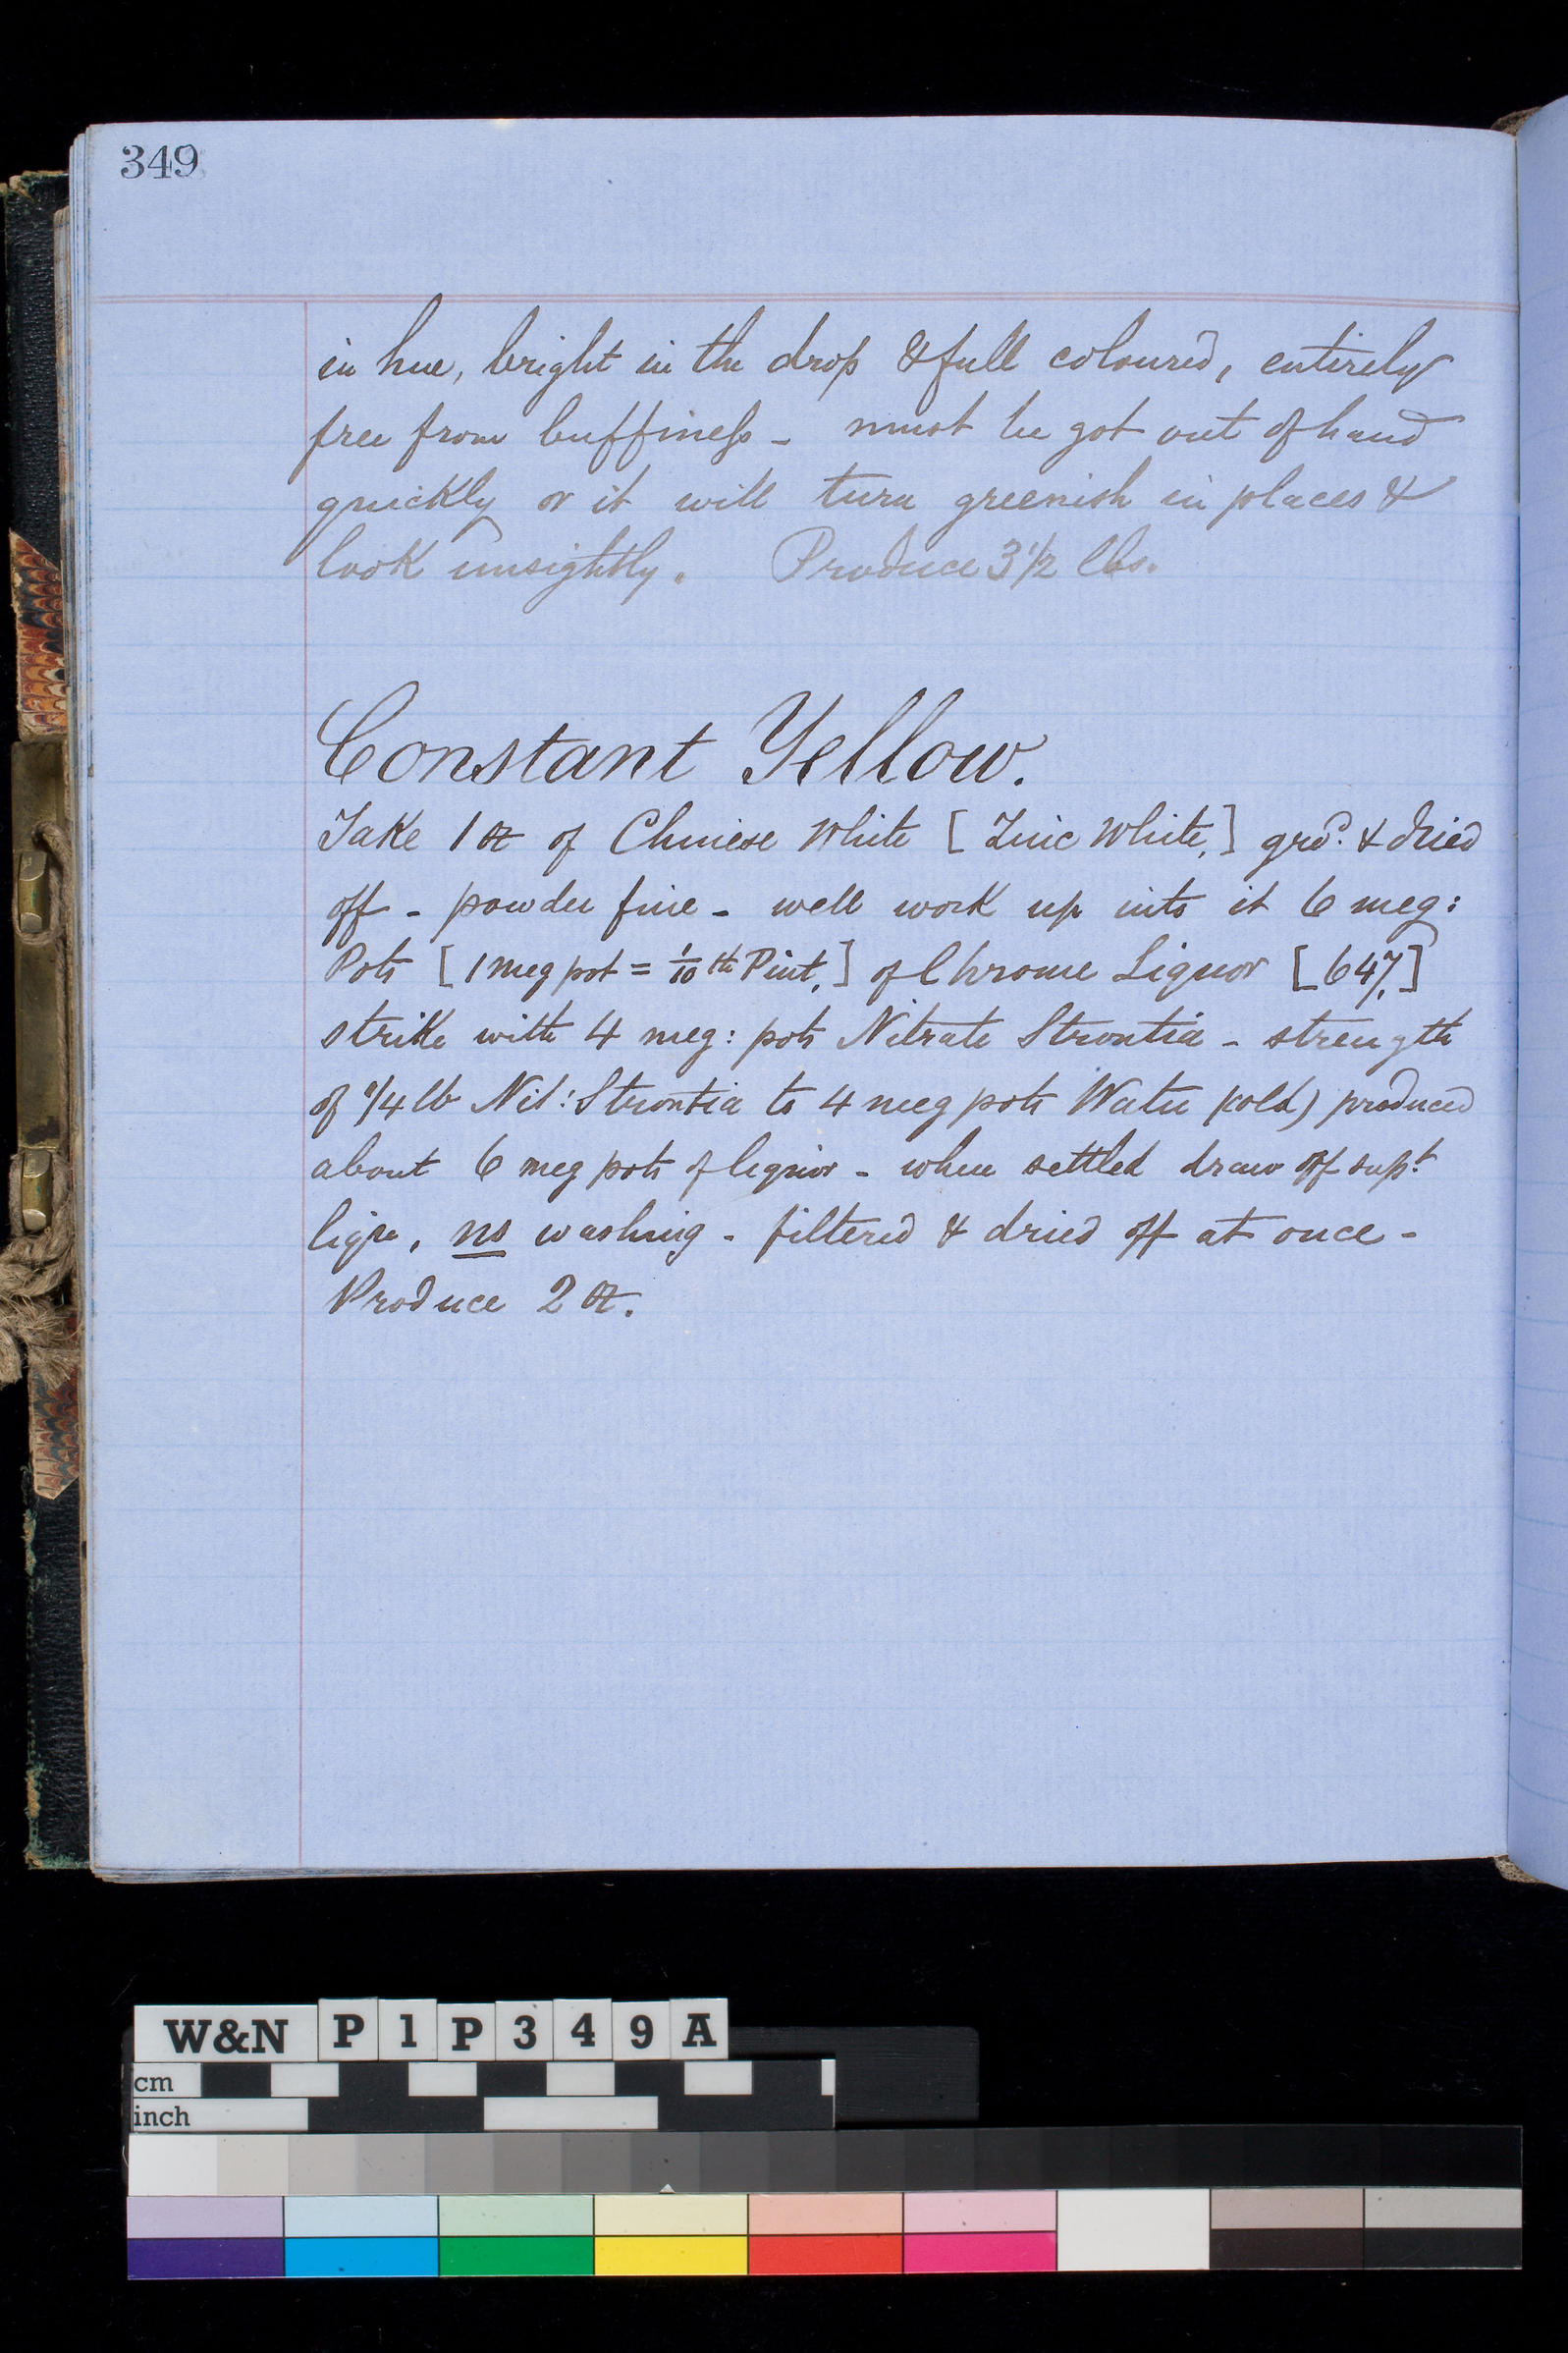 349
in hue, bright in the drop & full coloured, entirely
free from buffiness - must be got out of hand
quickly or it will turn greenish in places &
look unsightly. Produce 3 1/2 lbs.
Constant Yellow.
Take 1 oz of Chinese White [Zinc White,] grd. & dried
off - powder fine - well work up into it 6 meg:
Pots [1 meg pot = 1/10 th Pint,] of Chrome Liquor [647,]
strike with 4 meg: pots Nitrate Strontia - strength
of 1/4 lb Nit: Strontia to 4 meg pots Water (cold) produced
about 6 meg pots of liquor - when settled draw off supt
liqr, no washing - filtered & dried off at once -
Produce 2 oz.
W&N P 1 P 3 4 9 A
cm
inch